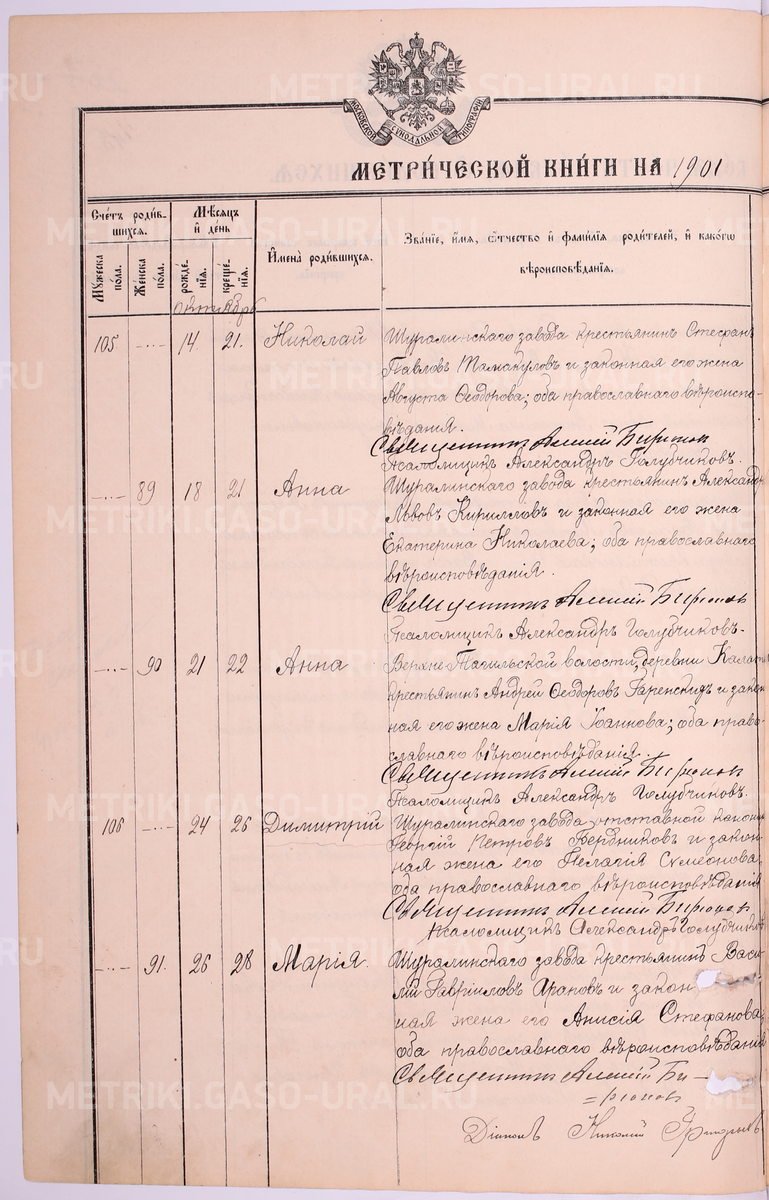 МОСКОВСКОЙ СѴНОДАЛЬНОЙ ТИПОГРАФІИ
МЕТРИ́ЧЕСКОЙ КНИ́ГИ НА 1901
Сче́тъ роди́в-
шихся.
Му́жеска
по́ла.
Же́нска
по́ла.
Мѣ́сяцъ
и҆ де́нь
рожде́-
нїѧ.
креще́-
нїѧ.
И҆мена̀ роди́вшихся.
Зва́нїе, и҆́мѧ, ѻ҆́тчество и҆ фамилїѧ роди́телей, и҆ како́гѡ
вѣроисповѣ́данїѧ.
октябрь
105 -..- 14 21. Николай Шуралинскаго завода крестьянинъ Стефанъ
Павловъ и законная его жена
Августа Ѳеодорова; оба православнаго вѣроиспо-
вѣданія.
Священникъ Алексій Бирюков
Псаломщикъ Александръ Голубчиковъ.
-..- 89 18 21 Анна Шуралинскаго завода крестьянинъ Александръ
Львовъ Кирилловъ и законная его жена
Екатерина Николаева; оба православнаго
вѣроисповѣданія.
Священникъ Алексій Бирюков
Псаломщикъ Александръ Голубчиковъ.
-..- 90 21 22 Анна Верхне-Тагильской волости, деревни
крестьянинъ Андрей Ѳеодоровъ и закон-
ная его жена Марія Іоаннова; оба право-
славнаго вѣроисповѣданія.
Священникъ Алексій Бирюков
Псаломщикъ Александръ Голубчиковъ.
106 -..- 24 26 Димитрій Шуралинскаго завода отставной
Георгій Петровъ Бердниковъ и закон-
ная жена его Пелагія Сумеонова,
оба православнаго вѣроисповѣданія
Священникъ Алексій Бирюков
Псаломщикъ Александръ Голубчиковъ
-..- 91. 26 28 Марія. Шуралинскаго завода крестьянинъ Васи-
лій Гавріиловъ Араповъ и закон
ная жена его Анисія Стефанова,
оба православнаго вѣроисповѣданія
Священникъ Алексій Би-
=рюков
Діаконъ Николай
METRIKI.GASO-URAL.RU